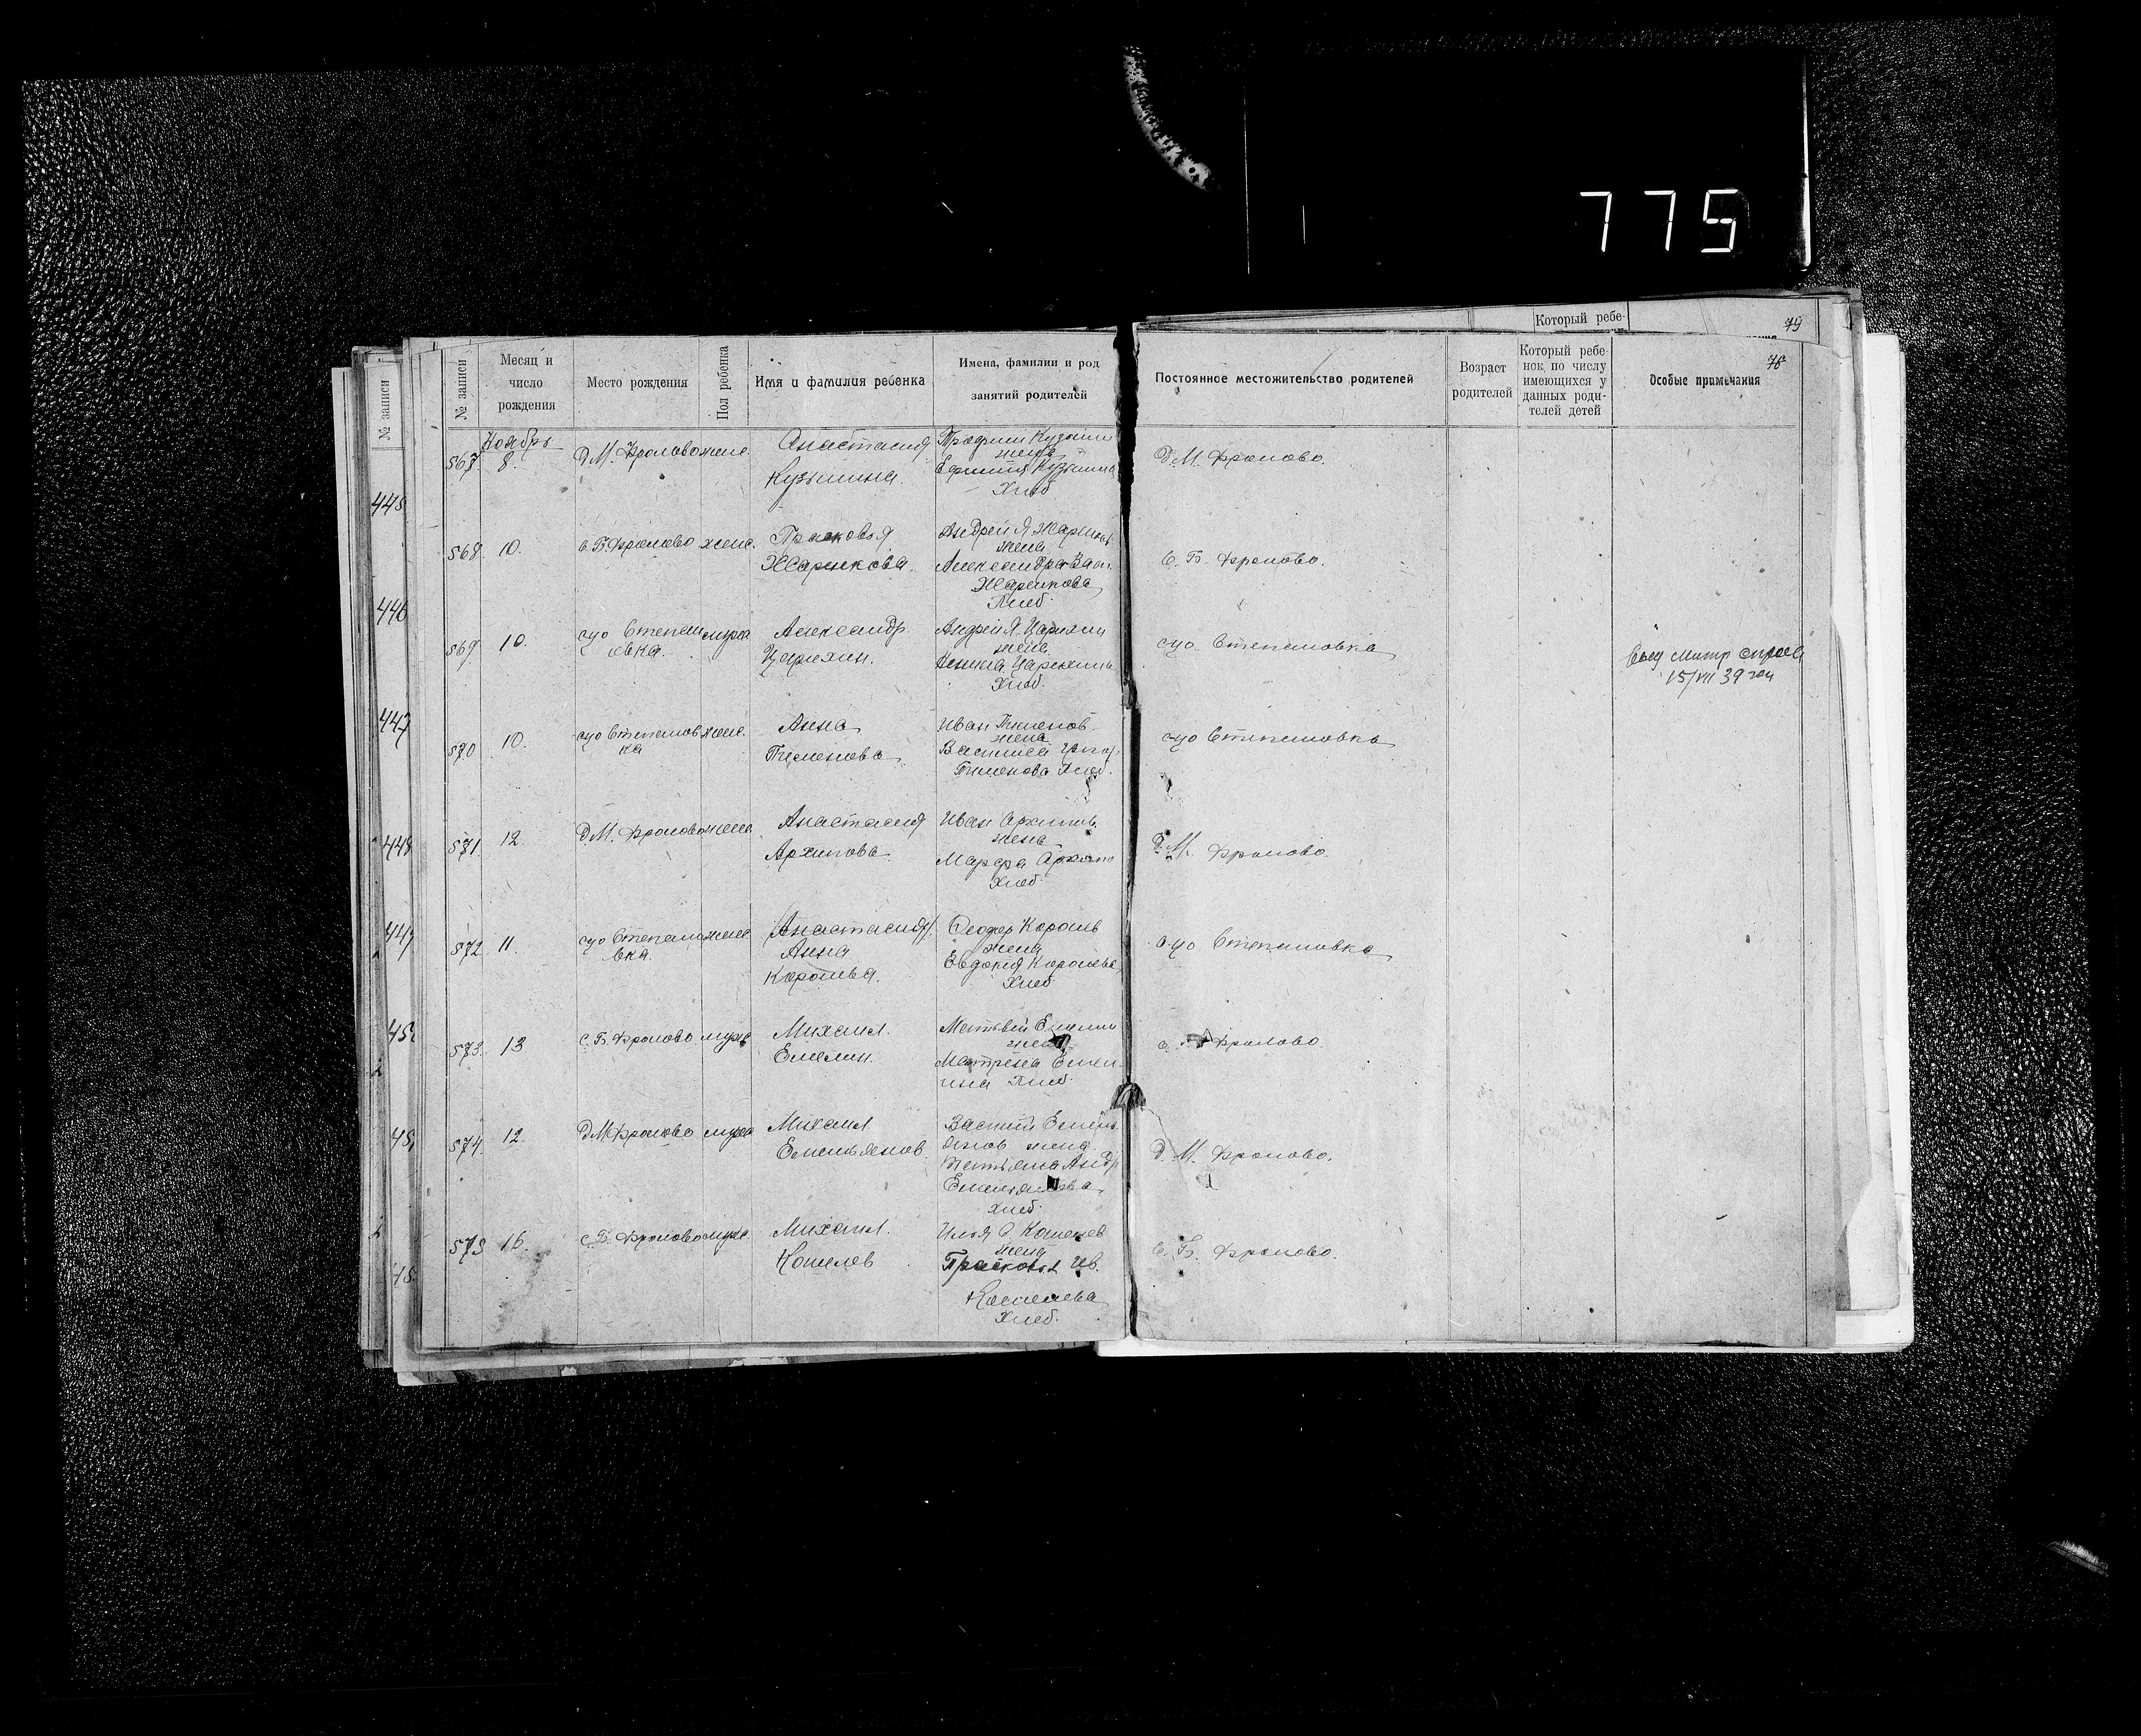 775
Который ребе-
79
78
№ записи
№ записи
Месяц и
число
рождения
Место рождения
Пол ребенка
Имя и фамилия ребенка
Имена, фамилии и род
занятий родителей
Постоянное местожительство родителей
Возраст
родителей
Который ребе-
нок, по числу
имеющихся у
данных роди-
телей детей
Особые примечания
Ноябрь
567 8. Д М. Фролово женс. Анастасия
Кузьмина.
жена
Хлеб
Д. М. Фролово.
445
568 10. с. Б. Фролово женс. Прасковья
Жарикова.
Андрей Я Жариков
жена
Александра Вас.
Жарикова
Хлеб
С. Б. Фролово.
446
569 10. Степан муж Александр
овка. Царихин.
Андрей Я. Царихин
жена
Хлеб.
Степановка
15/VII 39
447
570 10. Степанов женс. Анна
ка Пименова
Иван Пименов
жена
Пименова Хлеб.
Степановка
448
571. 12. Д М. Фролово женс. Анастасия
Архипова
Иван Архипов.
жена
Марфа
Хлеб
Д. М. Фролово
572 11. Степано женс Анастасия
вка. Анна
Королева.
Федор Королев
жена
Евдокия Королева
Хлеб
Степановка
573. 13 с. Б. Фролово муж Михаил.
Емелин.
Матвей Емелин
жена
Матрена Емел
ина Хлеб.
Фролово
574. 12. Д М Фролово муж Михаил
Емельянов.
Василий Емель
янов жена
Татьяна Андр
Хлеб.
Д. М. Фролово.
575 16. с. Б. Фролово муж. Михаил.
Кошелев
Илья Кошелев
жена
Прасковья Ив.
Кошелева
Хлеб.
С. Б. Фролово.